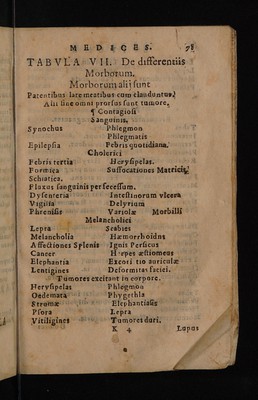 MEDICES. 78
TABVLA VII. De differentiis
Morborum.
Morborum alij sunt
Patentibus late meatibus cum clauduntur,
Alij sine omni prorsus sunt tumore.
¶ Contagiosi
Sanguinis.
Synochus Phlegmon
Phlegmatis
Epilepsia Febris quotidiana.
Cholerici
Febris tertia Herysipelas.
Formica Suffocationes Matricis,
Schiatica.
Fluxus sanguinis per secessum.
Dysenteria Intestinorum vlcera
Vigilia Delyrium
Phrenisis Variolæ Morbilli
Melancholici
Lepra Scabies
Melancholia Hæmorrhoidus
Affectiones Splenis Ignis Persicus
Cancer Herpes æstiomeus
Elephantia Excoriatio auriculæ
Lentigines Deformitas faciei.
Tumores excitant in corpore.
Herysipelas Phlegmon
Oedemata Phygethla
Strumæ Elephantiasis
Psora Lepra
Vitiligines Tumores duri.
K 4 Lupus